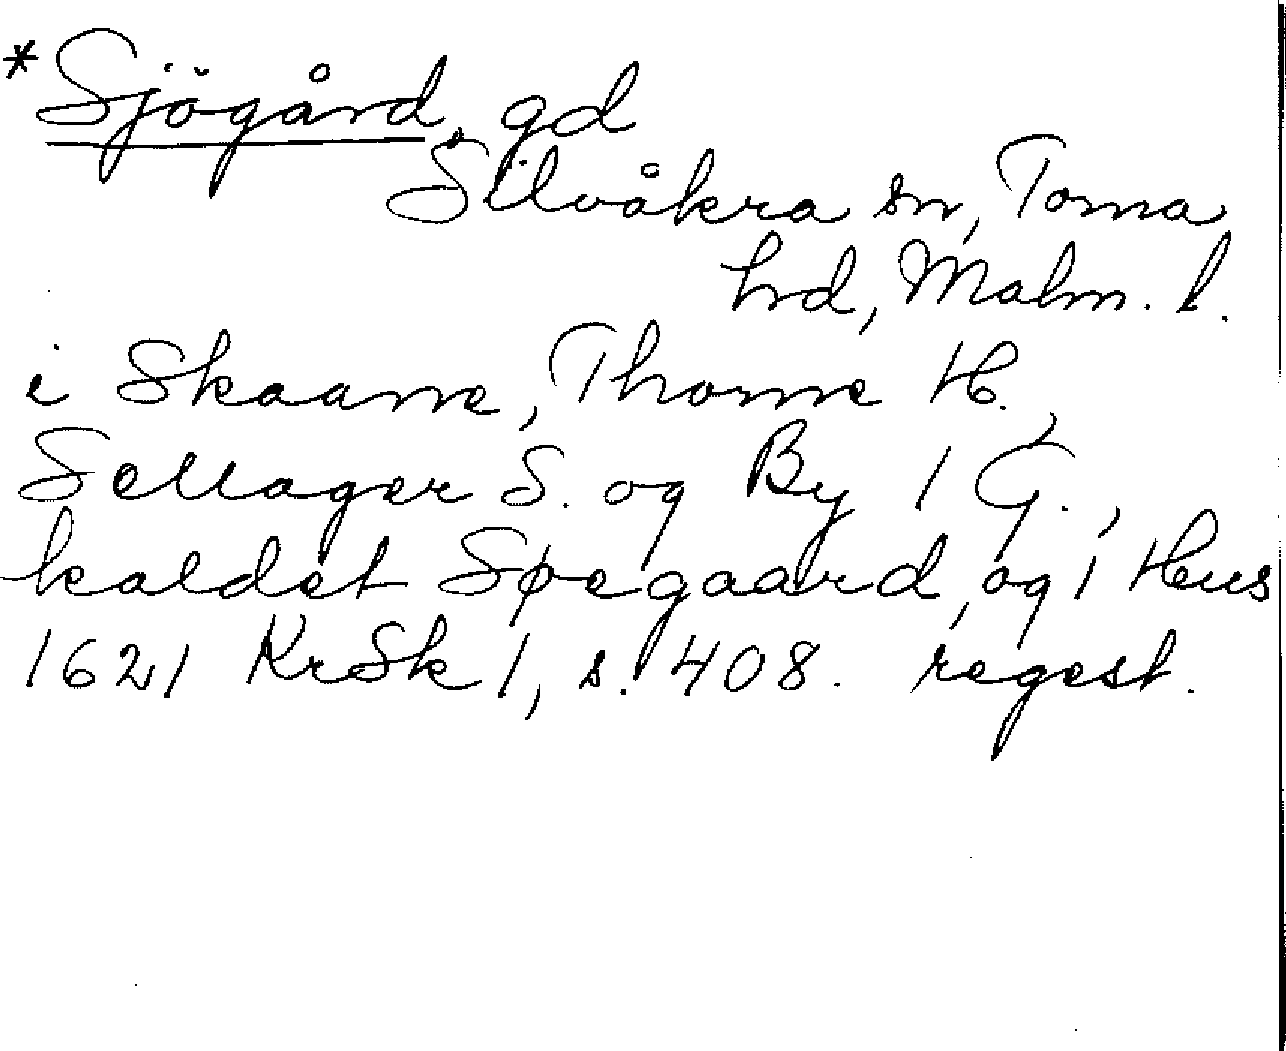 *Sjögård, gd
Silvåkra sn, Torna
hrd, Malm. l.
i Skaane, Thorne H.,
Sellager S. og By 1 G.,
kaldet Søegaard, og 1 Hus
1621 KrSk 1, s. 408. regest.